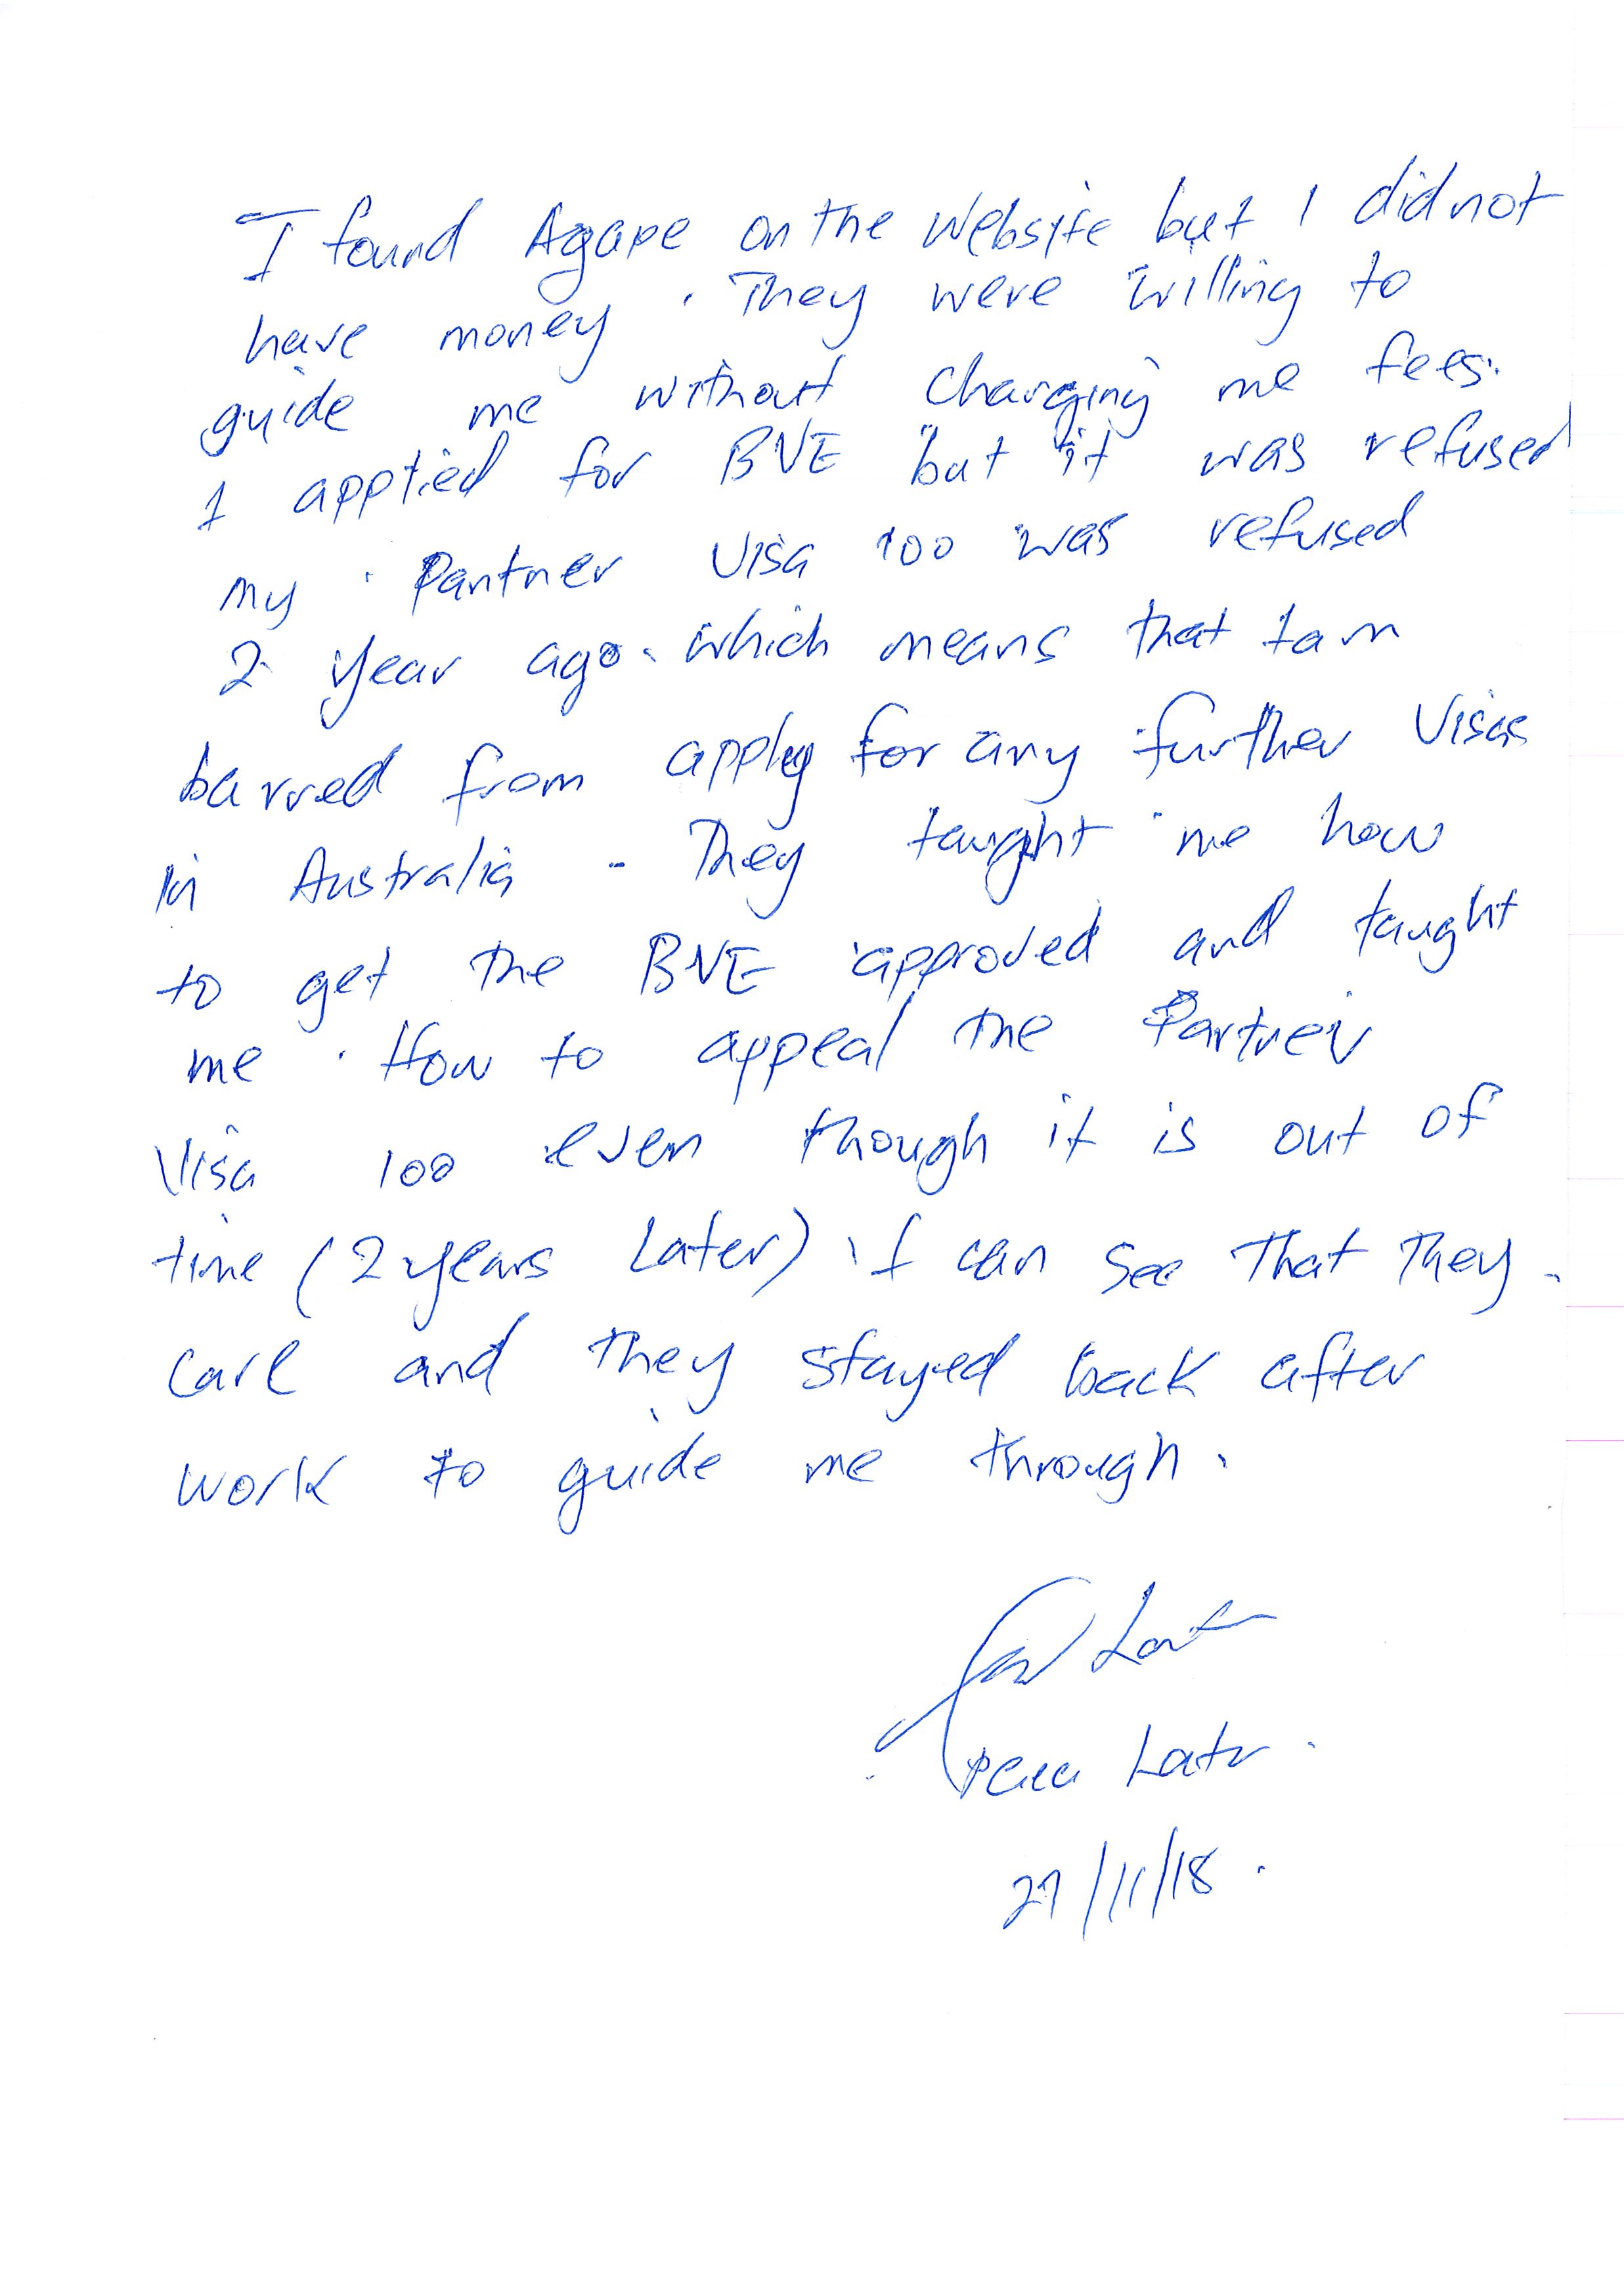 I found Agape on the website but I did not
have money. They were willing to
guide me without charging me fees.
I applied for BVE but it was refused
my Partner Visa 100 was refused
2 year ago. which means that I am
barred from apply for any further Visas
in Australia - They taught me how
to get the BVE approved and taught
me How to appeal the Partner
Visa 100 even though it is out of
time (2 years Later) I can see That They
care and They stayed back after
work to guide me through.
27/11/18.